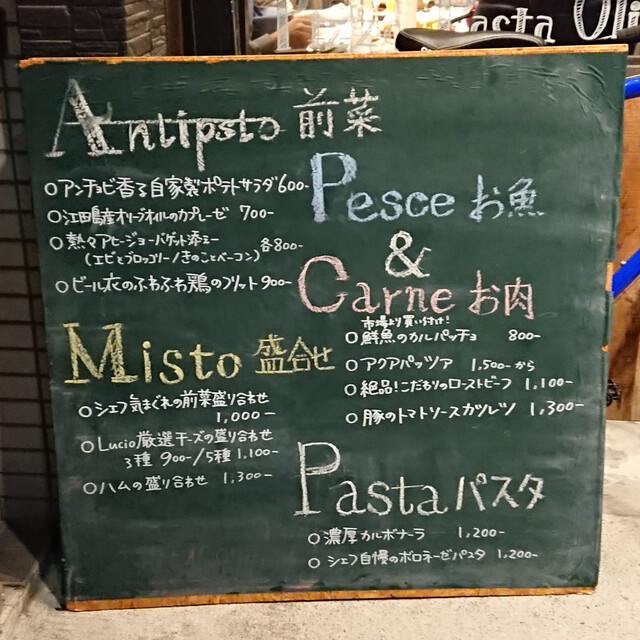 Pasta Oli
Antipsto 前菜
○アンチョビ香る自家製ポテトサラダ 600-
○江田島産オリーブオイルのカプレーゼ 700-
○熱々アヒージョ~バゲット添え~ 各800-
(エビとブロッコリー/きのことベーコン)
○ビール衣のふわふわ鶏のフリット 900-
Misto 盛合せ
○シェフ気まぐれの前菜盛り合わせ
1,000-
○Lucio厳選チーズの盛り合わせ
3種 900-/5種 1,100-
○ハムの盛り合わせ 1,300-
Pesce お魚
&
Carne お肉
市場より買い付け!
○鮮魚のカルパッチョ 800-
○アクアパッツア 1,500-から
○絶品!こだわりのローストビーフ 1,100-
○豚のトマトソースカツレツ 1,300-
Pasta パスタ
○濃厚カルボナーラ 1,200-
○シェフ自慢のボロネーゼパスタ 1,200-